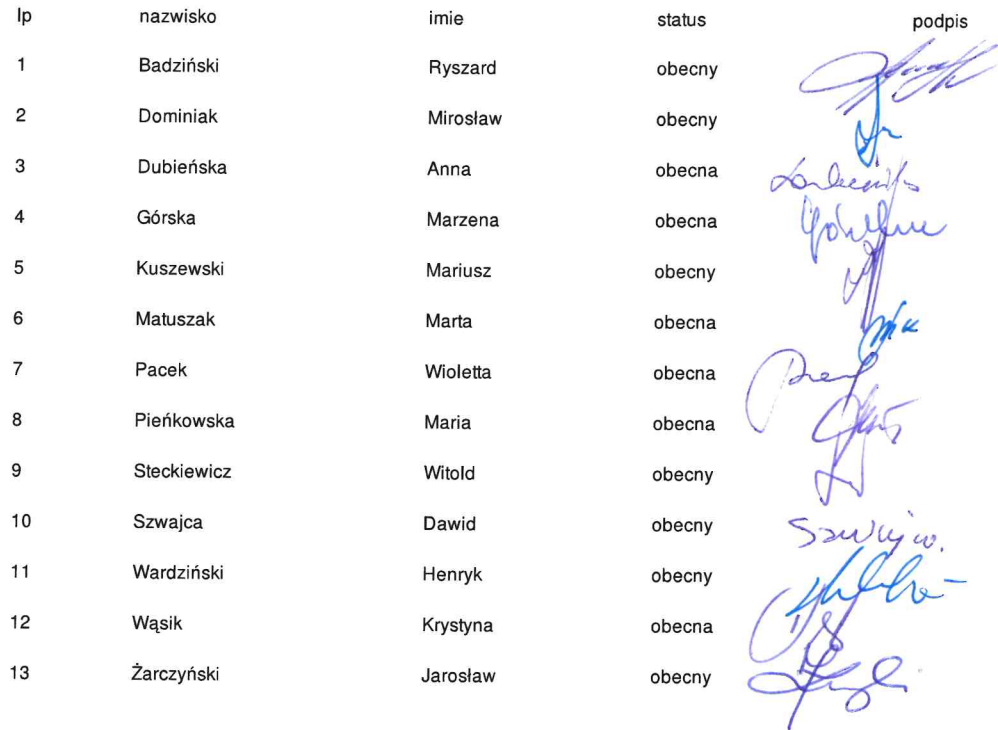 lp nazwisko imie status podpis
1 Badziński Ryszard obecny
2 Dominiak Mirosław obecny
3 Dubieńska Anna obecna
4 Górska Marzena obecna
5 Kuszewski Mariusz obecny
6 Matuszak Marta obecna
7 Pacek Wioletta obecna
8 Pieńkowska Maria obecna
9 Steckiewicz Witold obecny
10 Szwajca Dawid obecny
11 Wardziński Henryk obecny
12 Wąsik Krystyna obecna
13 Żarczyński Jarosław obecny